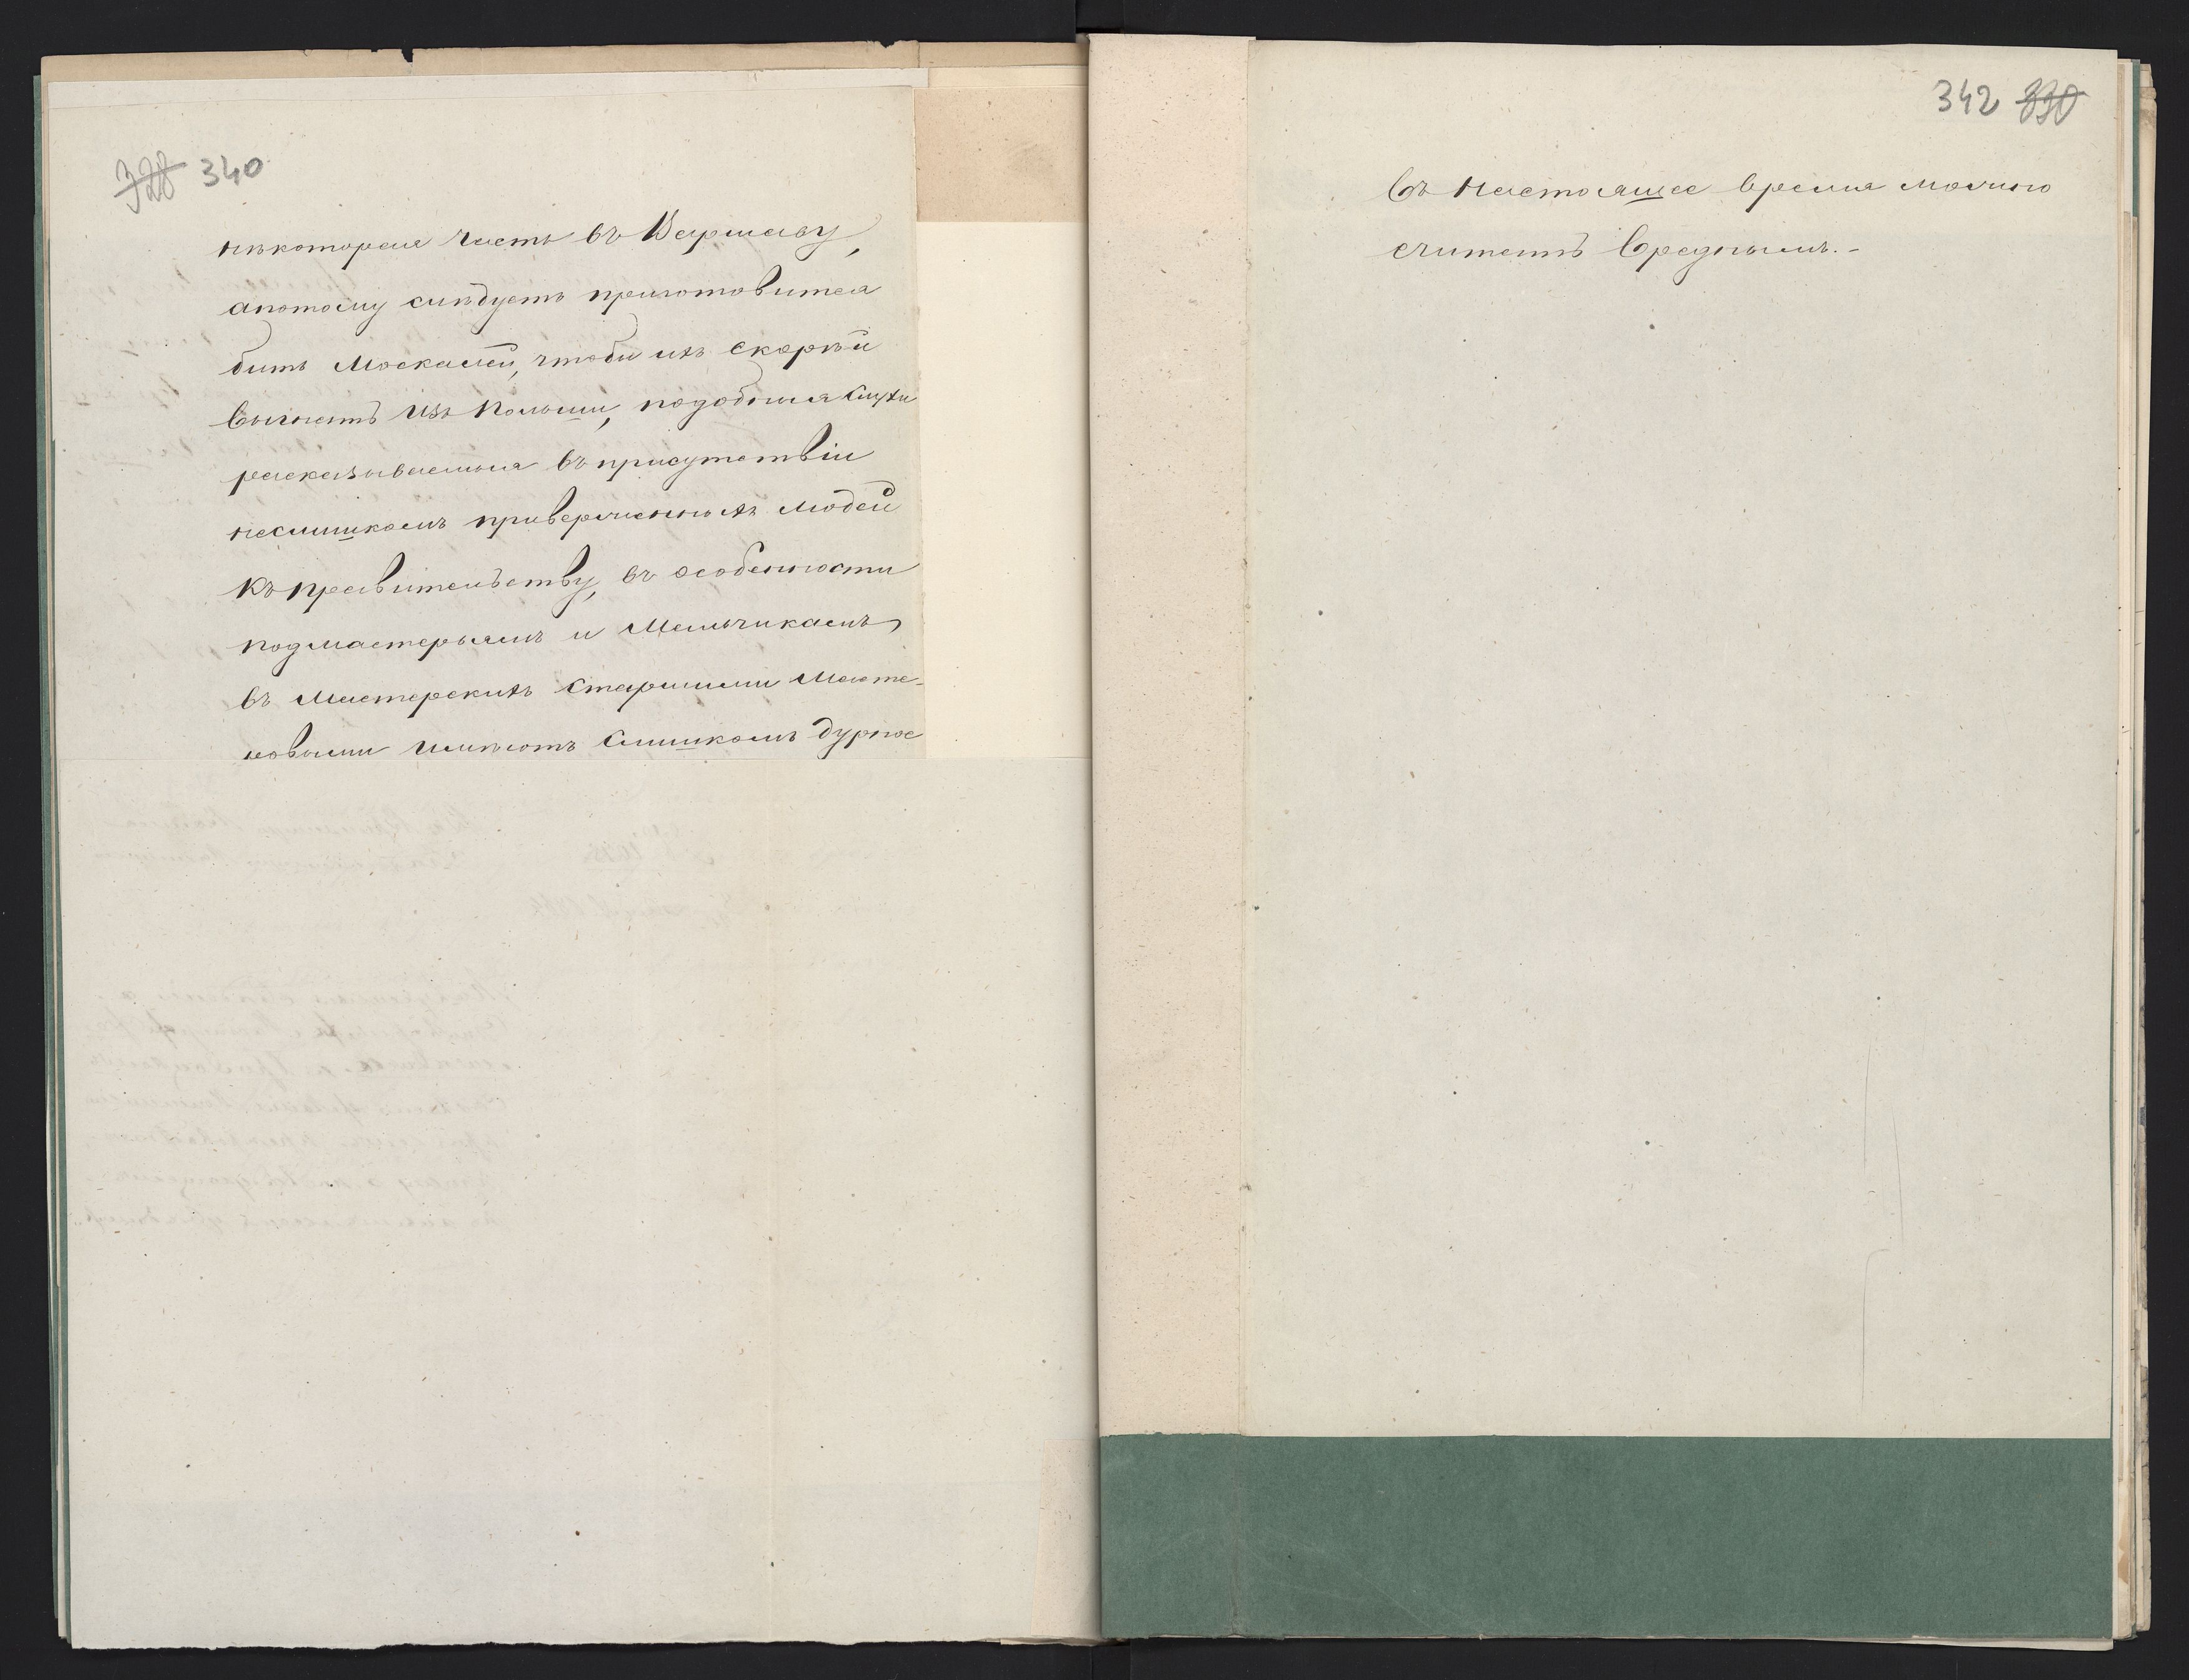 328 340
нѣкоторая часть въ Варшаву,
апотому слѣдуетъ приготовится
бить Москалей, чтоби ихъ скорѣй
выгнать изъ Польши, подобныя слухи
расказываемыя въ присутствіи
неслишкомъ приверженныхъ людей
къ правительству, въ особенности
подмастерьямъ и Мальчикамъ
въ Мастерскихъ старшими Масте-
ровыми имѣютъ слишкомъ дурное
342 330
въ настоящее время можно
считать вреднымъ.-